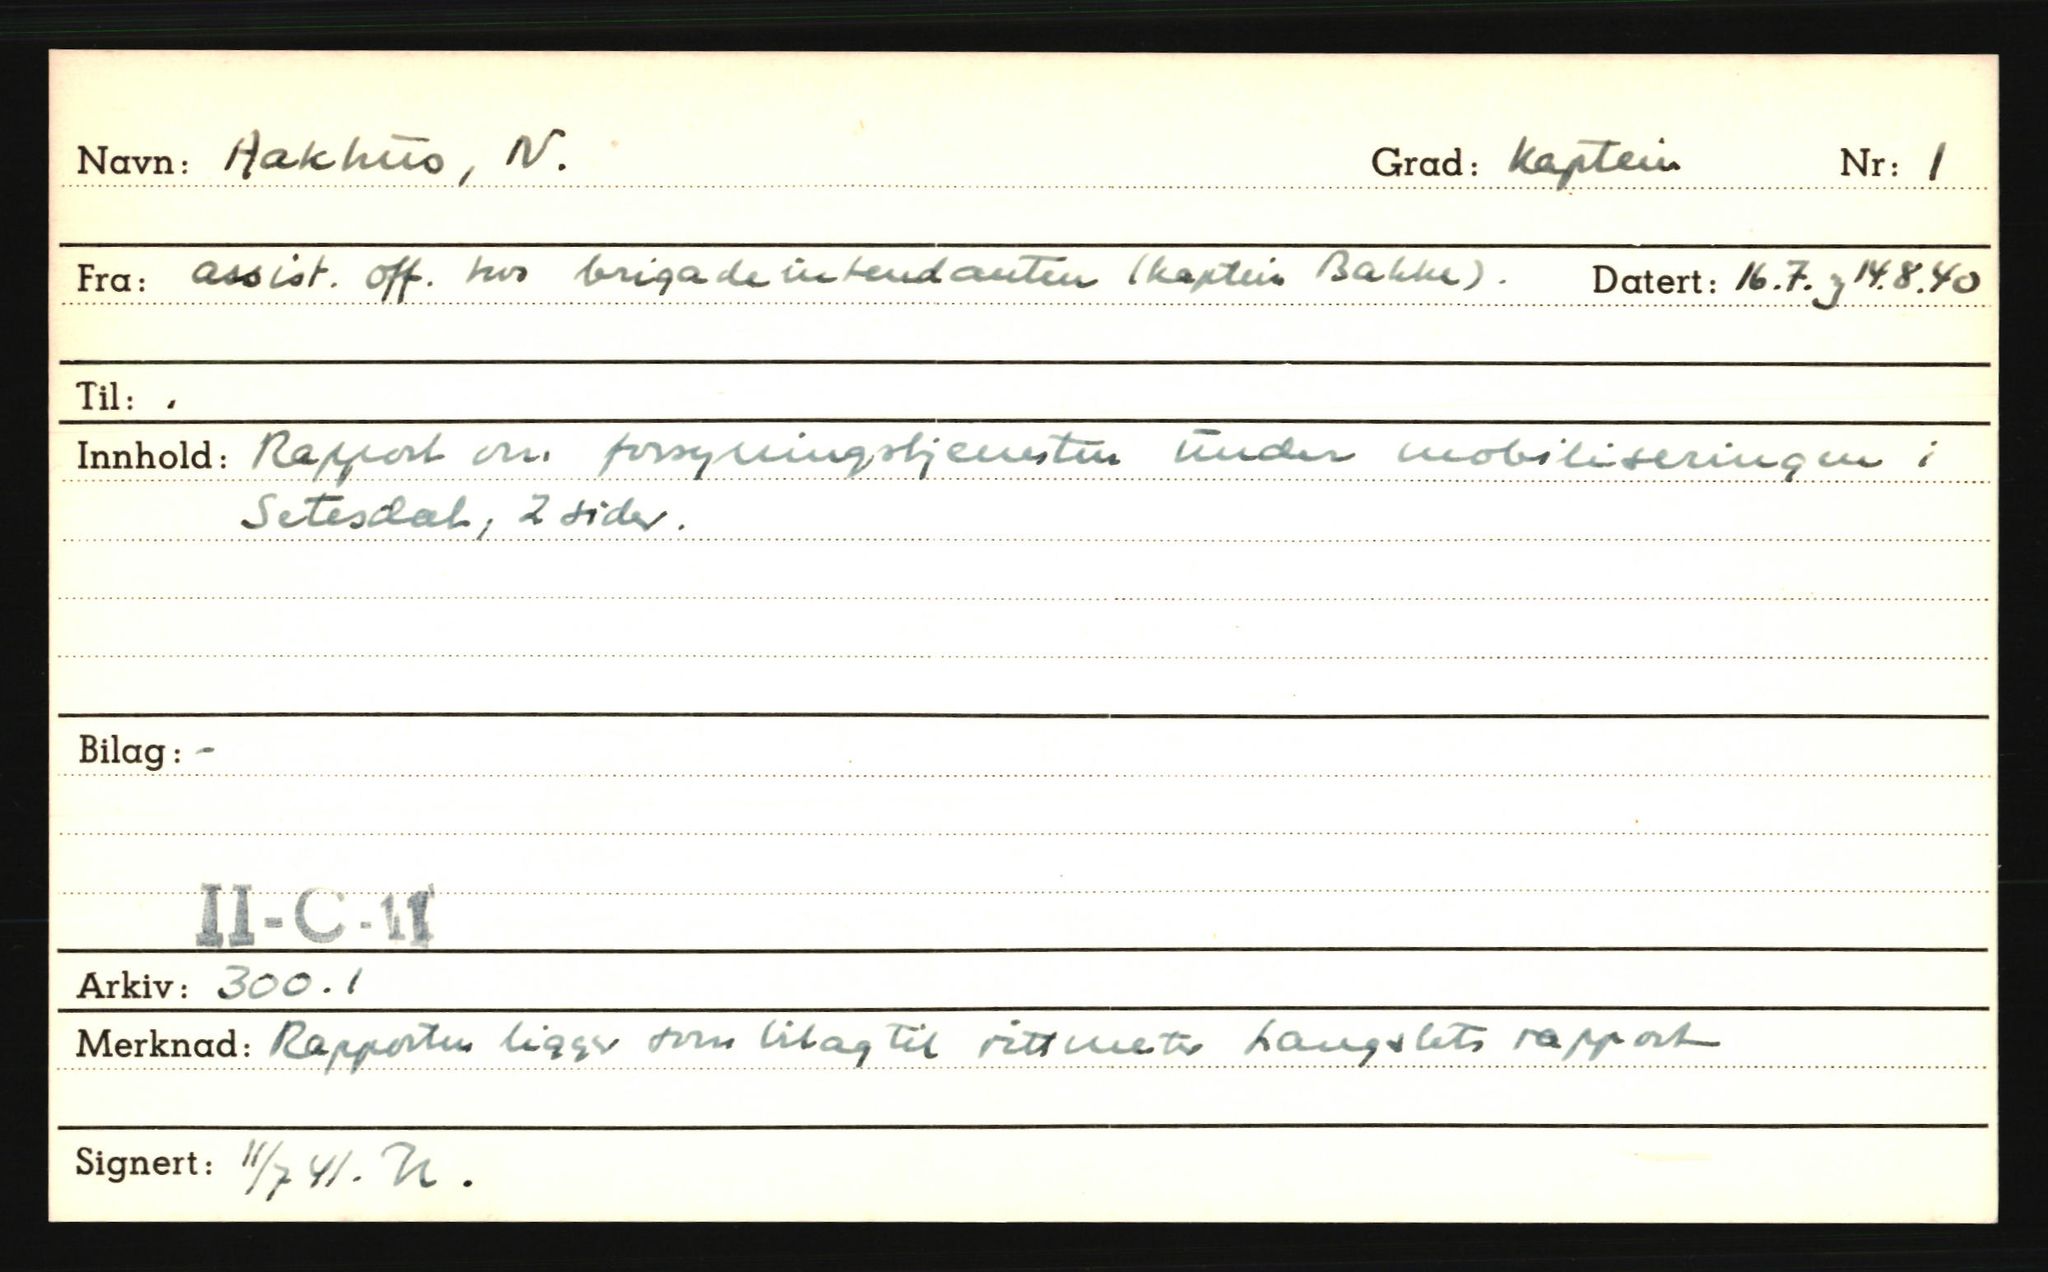 Navn: Aakhus, N. Grad: Kaptein Nr: 1
Fra: assist. off. hos brigadeintendanten (kaptein Bakke). Datert: 16.7. og 14.8.40
Til: .
Innhold: Rapport om forsyningstjenesten under mobiliseringen i
Setesdal, 2 sider.
Bilag: -
II-C-11
Arkiv: 300.1
Merknad: Rapporten ligger som bilag til rittmester Langslets rapport
Signert: 11/7 41. N.